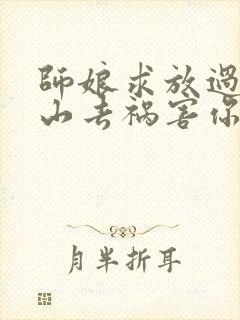 師娘求放過
山去禍害你
月半折耳